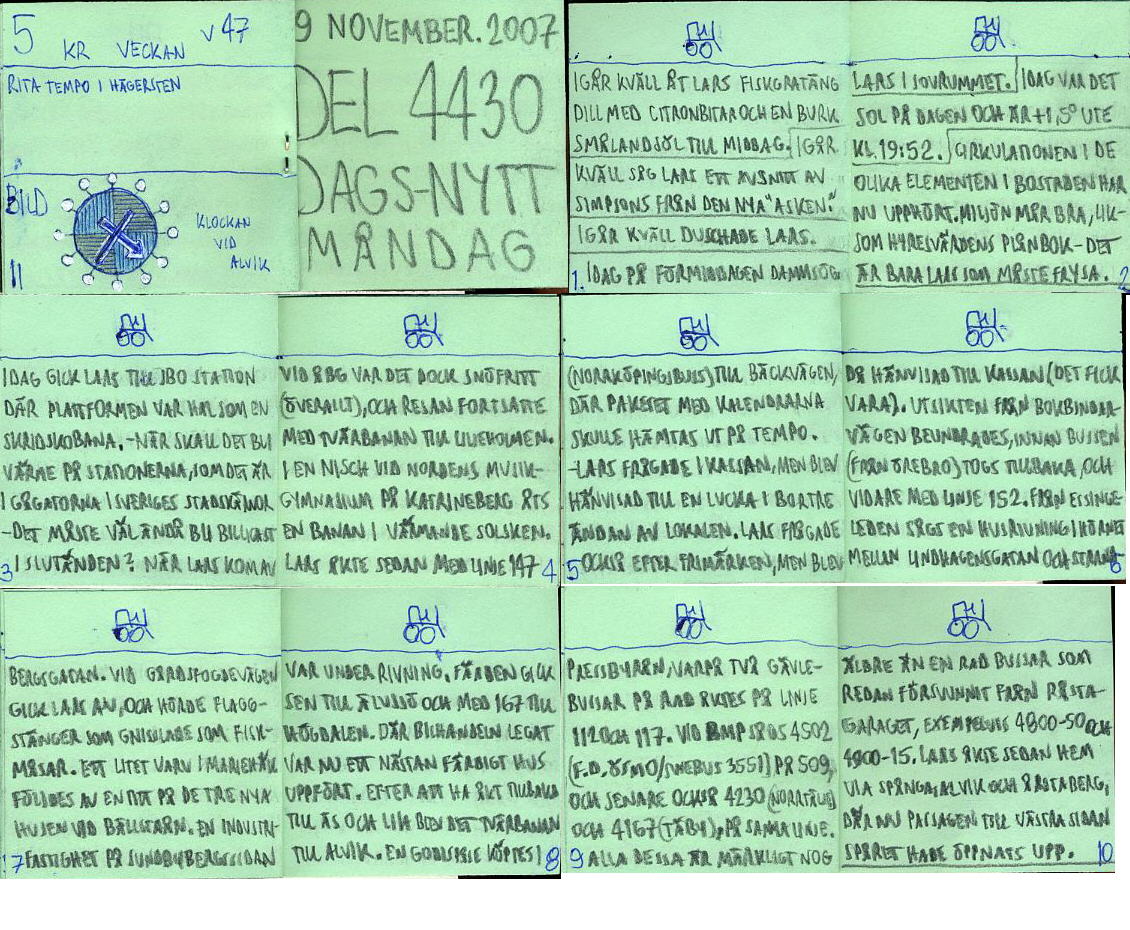 5 KR VECKAN V 47
RITA TEMPO I HÄGERSTEN
BILD
KLOCKAN
VID
ALVIK
11
9 NOVEMBER. 2007
DEL 4430
DAGS-NYTT
MÅNDAG
IGÅR KVÄLL ÅT LARS FISKGRATÄNG
DILL MED CITRONBITAR OCH EN BURK
SMÅLANDSÖL TILL MIDDAG. IGÅR
KVÄLL SÅG LARS ETT AVSNITT AV
SIMPSONS FRÅN DEN NYA "ASKEN."
IGÅR KVÄLL DUSCHADE LARS.
1. IDAG PÅ FÖRMIDDAGEN DAMMSÖG
LARS I SOVRUMMET. IDAG VAR DET
SOL PÅ DAGEN OCH ÄR +1,5° UTE
KL. 19:52. CIRKULATIONEN I DE
OLIKA ELEMENTEN I BOSTADEN HAR
NU UPPHÖRT. MILJÖN MÅR BRA, LIK-
SOM HYRESVÄRDENS PLÅNBOK - DET
ÄR BARA LARS SOM MÅSTE FRYSA. 2
IDAG GICK LARS TILL JBO STATION
DÄR PLATTFORMEN VAR HAL SOM EN
SKRIDSKOBANA. -NÄR SKALL DET BLI
VÄRME PÅ STATIONERNA, SOM DET ÄR
I GÅGATORNA I SVERIGES STADSKÄRNOR
-DET MÅSTE VÄL ÄNDÅ BLI BILLIGAST
3 I SLUTÄNDEN? NÄR LARS KOM AV
VID ÅBG VAR DET DOCK SNÖFRITT
(ÖVERALLT), OCH RESAN FORTSATTE
MED TVÄRBANAN TILL LILJEHOLMEN.
I EN NISCH VID NORDENS MUSIK-
GYMNASIUM PÅ KATRINEBERG ÅTS
EN BANAN I VÄRMANDE SOLSKEN.
LARS ÅKTE SEDAN MED LINJE 147 4
(NORRKÖPINGSBUSS) TILL BÄCKVÄGEN,
DÄR PAKETET MED KALENDRARNA
SKULLE HÄMTAS UT PÅ TEMPO.
-LARS FRÅGADE I KASSAN, MEN BLEV
HÄNVISAD TILL EN LUCKA I BORTRE
ÄNDAN AV LOKALEN. LARS FRÅGADE
5 OCKSÅ EFTER FRIMÄRKEN, MEN BLEV
DÅ HÄNVISAD TILL KASSAN (DET FICK
VARA). UTSIKTEN FRÅN BOKBINDAR-
VÄGEN BEUNDRADES, INNAN BUSSEN
(FRÅN ÖREBRO) TOGS TILLBAKA, OCH
VIDARE MED LINJE 152. FRÅN ESSINGE-
LEDEN SÅGS EN HUSRIVNING I HÖRNET
MELLAN LINDHAGENSGATAN OCH STRAND- 6
BERGSGATAN. VID GÅRDSFOGDEVÄGEN
GICK LARS AV, OCH HÖRDE FLAGG-
STÄNGER SOM GNISLADE SOM FISK-
MÅSAR. ETT LITET VARV I MARIEHÄLL
FÖLJDES AV EN TITT PÅ DE TRE NYA
HUSEN VID BÄLLSTAÅN. EN INDUSTRI-
7 FASTIGHET PÅ SUNDBYBERGSSIDAN
VAR UNDER RIVNING. FÄRDEN GICK
SEN TILL ÄLVSJÖ OCH MED 167 TILL
HÖGDALEN. DÄR BILHANDELN LEGAT
VAR NU ETT NÄSTAN FÄRDIGT HUS
UPPFÖRT. EFTER ATT HA ÅKT TILLBAKA
TILL ÄS OCH LIH BLEV DET TVÄRBANAN
TILL ALVIK. EN GODISPÅSE KÖPTES I 8
PRESSBYRÅN, VARPÅ TVÅ GÄVLE-
BUSSAR PÅ RAD ÅKTES PÅ LINJE
112 OCH 117. VID BMP SÅGS 4502
(F.D. ÖSMO/SWEBUS 3551) PÅ 509,
OCH SENARE OCKSÅ 4230 (NORRTÄLJE)
OCH 4167 (TÄBY), PÅ SAMMA LINJE.
9 ALLA DESSA ÄR MÄRKLIGT NOG
ÄLDRE ÄN EN RAD BUSSAR SOM
REDAN FÖRSVUNNIT FRÅN RÅSTA-
GARAGET, EXEMPELVIS 4800-50 OCH
4900-15. LARS ÅKTE SEDAN HEM
VIA SPÅNGA, ALVIK OCH ÅRSTABERG,
DÄR NU PASSAGEN TILL VÄSTRA SIDAN
SPÅRET HADE ÖPPNATS UPP. 10